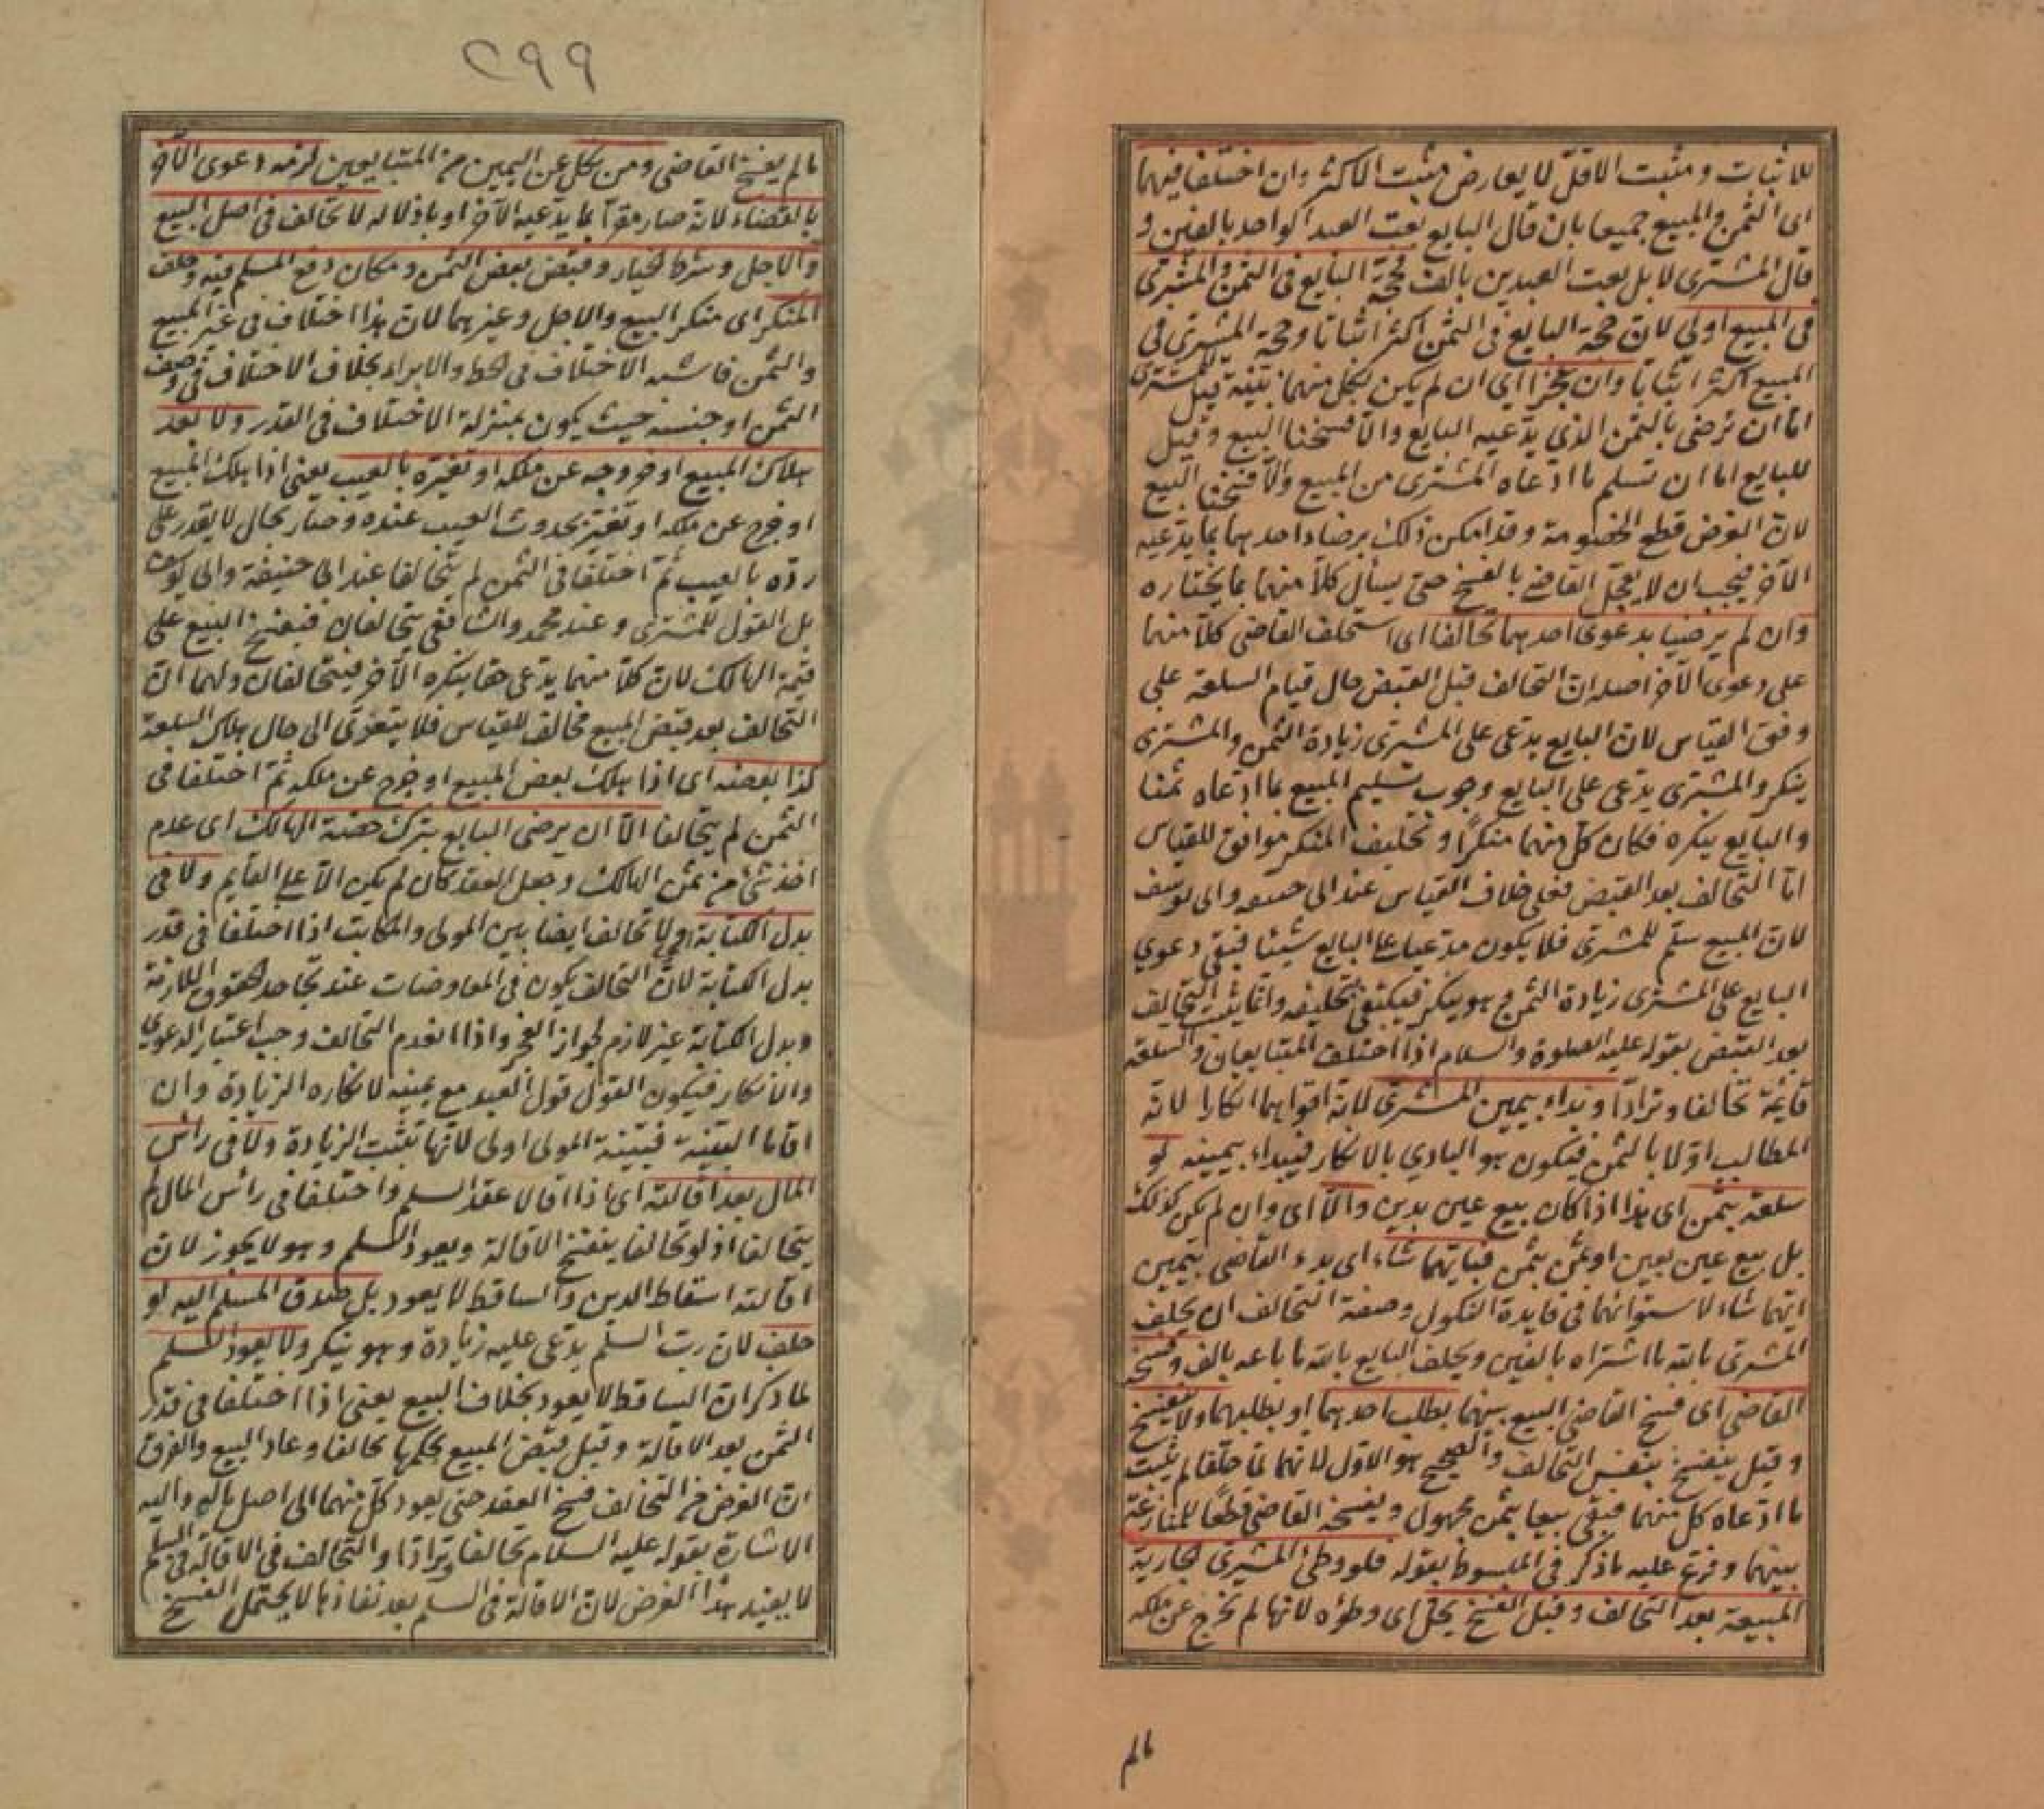 للاثبات ومثبت الاقل لا يعارض مثبت الاكثر وان اختلفا فيهما
اى الثمن والمبيع جميعا بان قال البايع بعت العبد الواحد بالفين و
قال المشترى لا بل بعت العبدين بالف فحجة البايع فى الثمن والمشترى
فى المبيع اولى لان حجة البايع فى الثمن اكثر اثباتا وحجة المشترى فى
المبيع اكثر اثباتا وان عجزا اى ان لم يكن لكل منهما بينة قيل للمشترى
اما ان ترضى بالثمن الذي يدعيه البايع والا فسخنا البيع وقيل
للبايع اما ان تسلم ما ادعاه المشترى من المبيع والا فسخنا البيع
لان الغرض قطع الخصومة وقد امكن ذلك برضاء احدهما بما يدعيه
الآخر فيجب ان لا يعجل القاضى بالفسخ حتى يسأل كلا منهما بما يختاره
وان لم يرضيا بدعوى احدهما تحالفا اى استحلف القاضى كلا منهما
على دعوى الآخر اصله ان التحالف قبل القبض حال قيام السلعة على
وفق القياس لان البايع يدعى على المشترى زيادة الثمن والمشترى
ينكر والمشترى يدعى على البايع وجوب تسليم المبيع بما ادعاه ثمنا
والبايع ينكره فكان كل منهما منكرا وتحليف المنكر موافق للقياس
اما التحالف بعد القبض فعلى خلاف القياس عند ابى حنيفه وابى يوسف
لان المبيع سلم للمشترى فلا يكون مدعيا على البايع شيئا فبقى دعوي
البايع على المشترى زيادة الثمن وهو ينكر فيكتفى بتحليفه وانما يثبت التحالف
بعد القبض بقوله عليه الصلوة والسلام اذا اختلف المتبايعان والسلعة
قايمة تحالفا وترادا وبداء بيمين المشترى لانه اقواهما انكارا لانه
المطالب اولا بالثمن فيكون هو البادي بالانكار فيبداء بيمينه لو
سلعة بثمن اى هذا اذا كان بيع عين بدين والا اى وان لم يكن كذلك
بل بيع عين بعين او ثمن بثمن فبايهما شاء اى بدء القاضى بيمين
ايهما شاء لاستوائهما فى فايدة النكول وصفة التحالف ان يحلف
المشترى بالله ما اشتراه بالفين ويحلف البايع بالله ما باعه بالف وفسخه
القاضى اى فسخ القاضى البيع بينهما بطلب احدهما او بطلبهما ولا ينفسخ
وقيل ينفسخ بنفس التحالف والصحيح هو الاول لانهما لما حلفا لم يثبت
ما ادعاه كل منهما فبقى بيعا بثمن مجهول ويفسخه القاضى قطعا للمنازعة
بينهما وفرع عليه ما ذكر فى المبسوط بقوله فلو وطئ المشترى الجارية
المبيعة بعد التحالف وقبل الفسخ يحل اى وطؤه لانها لم تخرج عن ملكه
مالم
٢٩٩
مالم يفسخ القاضى ومن نكل عن اليمين من المتبايعين لزمه دعوى الآخر
بالقضاء لانه صار مقرا بما يدعيه الآخر او باذلا له لا تحالف فى اصل البيع
والاجل وشرط الخيار وقبض بعض الثمن ومكان دفع المسلم فيه وحلف
المنكر اى منكر البيع والاجل وغيرهما لان هذا اختلاف فى غير المبيع
والثمن فاشبه الاختلاف فى الحط والابراء بخلاف الاختلاف فى وصف
الثمن او جنسه حيث يكون بمنزلة الاختلاف فى القدر ولا بعد
هلاك المبيع او خروجه عن ملكه او تغيره بالعيب يعنى اذا هلك المبيع
او خرج عن ملكه او تغير بحدوث العيب عنده وصار بحال لا يقدر على
رده بالعيب ثم اختلفا فى الثمن لم يتحالفا عند ابى حنيفة وابى يوسف
بل القول للمشترى وعند محمد والشافعى يتحالفان فيفسخ البيع على
قيمة الهالك لان كلا منهما يدعى حقا ينكره الآخر فيتحالفان ولهما ان
التحالف بعد قبض المبيع مخالف للقياس فلا يتعدى الى حال هلاك السلعة
كذا بعضه اى اذا هلك بعض المبيع او خرج عن ملكه ثم اختلفا فى
الثمن لم يتحالفا الا ان يرضى البايع بترك حصة الهالك اى عدم
اخذ شئ من ثمن الهالك وجعل العقد كان لم يكن الا على القايم ولا فى
بدل الكتابة اى لا تحالف ايضا بين المولى والمكاتب اذا اختلفا فى قدر
بدل الكتابة لان التحالف يكون فى المعاوضات عند تجاحد الحقوق اللازمة
وبدل الكتابة غير لازم لجواز العجز واذا انعدم التحالف وجب اعتبار الدعوي
والانكار فيكون القول قول العبد مع يمينه لانكاره الزيادة وان
اقاما البينة فبينة المولى اولى لانها تثبت الزيادة ولا فى رأس
المال بعد اقالته اى اذا اقالا عقد السلم واختلفا فى رأس المال لم
يتحالفا اذ لو تحالفا ينفسخ الاقالة ويعود السلم وهو لا يجوز لان
اقالته اسقاط الدين والساقط لا يعود بل صدق المسلم اليه لو
حلف لان رب السلم يدعى عليه زيادة وهو ينكر ولا يعود السلم
لما ذكر ان الساقط لا يعود بخلاف البيع يعنى اذا اختلفا فى قدر
الثمن بعد الاقالة وقيل قبض المبيع بحكمها تحالفا وعاد البيع والفرق
ان الغرض من التحالف فسخ العقد حتى يعود كل منهما الى اصل ماله واليه
الاشارة بقوله عليه السلام تحالفا وترادا والتحالف فى الاقالة فى السلم
لا يفيد هذا الغرض لان الاقالة فى السلم بعد نفاذها لا يحتمل الفسخ